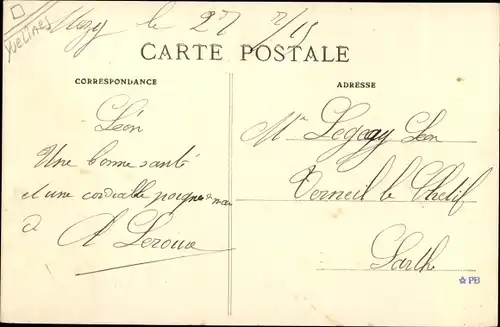 YVELINES
Mézy le 27 7/15
CARTE POSTALE
CORRESPONDANCE
ADRESSE
Léon
Une bonne santé
et une cordialle poignée main
à A Leroux
Mr Legagy Léon
Verneil le Chetif
Sarthe
PB